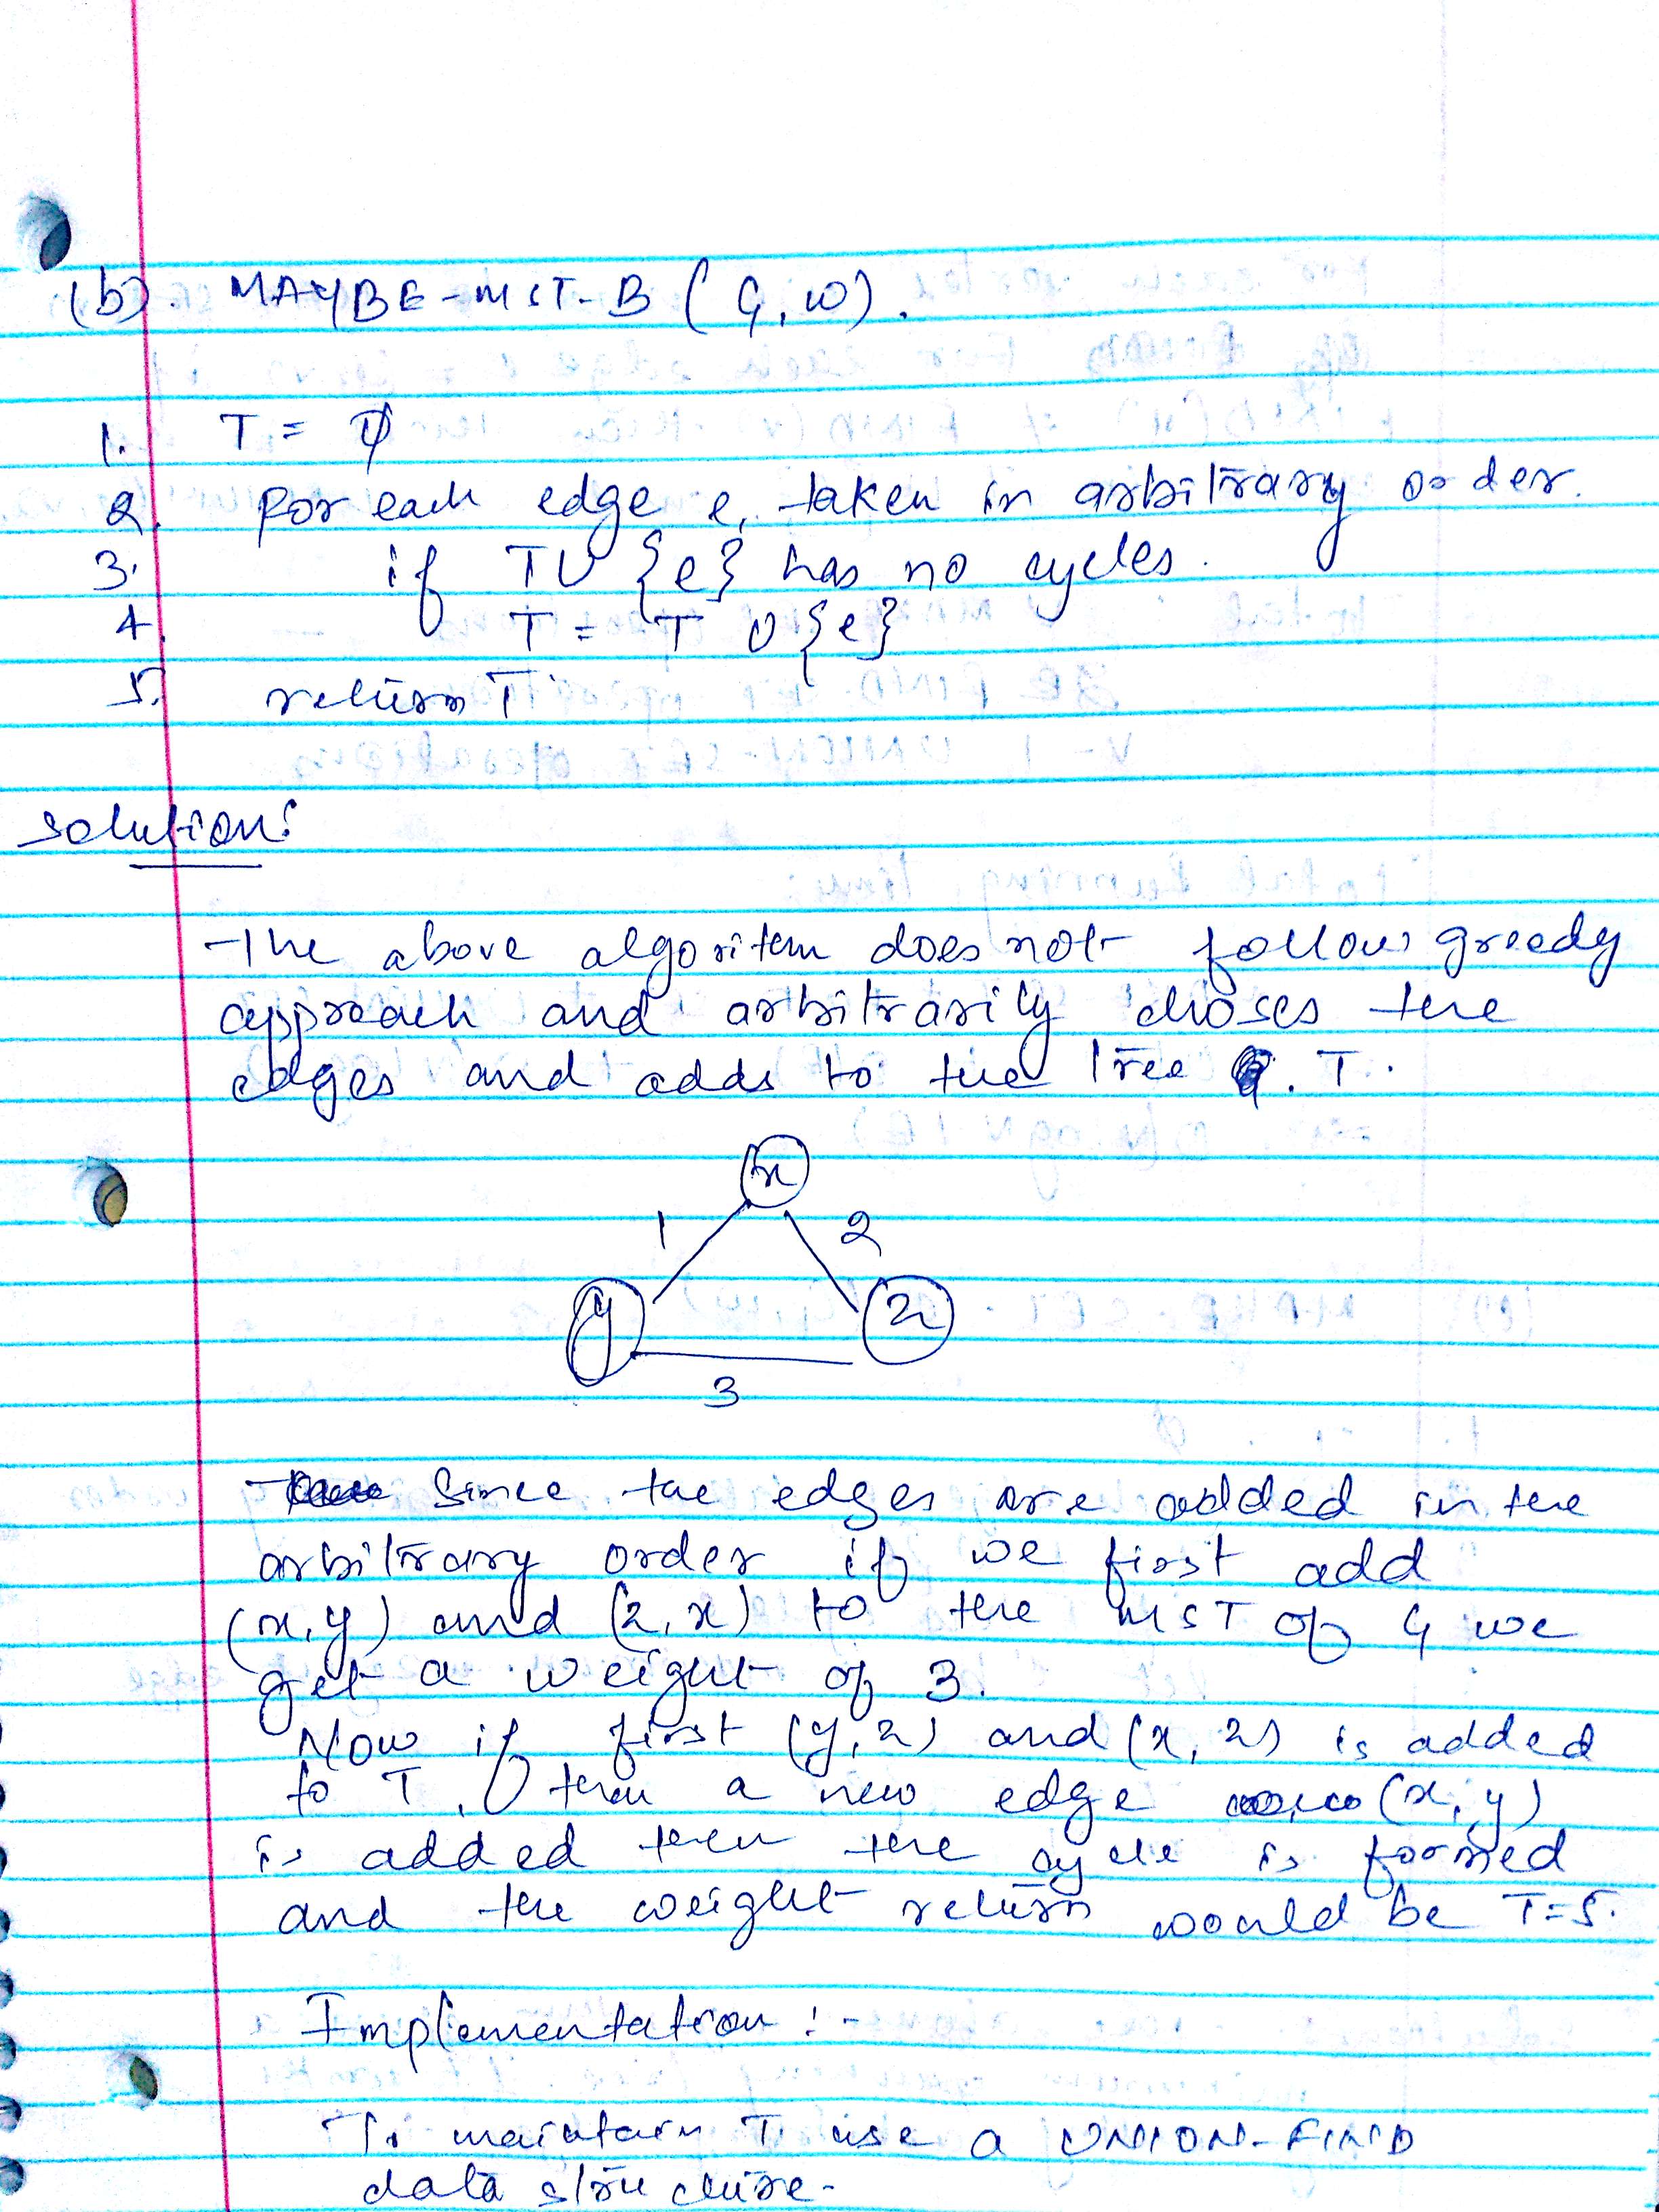 (b). MAYBE-MST-B (G, w).
1. T = ∅
2. For each edge e, taken in arbitrary order.
3. if T∪ {e} has no cycles.
4. T = T ∪ {e}
5. return T
solution:
The above algoritem does not follow greedy
approach and arbitrarily choses the
edges and adds to the tree . T.
x
1 2
y z
3
Since the edges are added in the
arbitrary order if we first add
(x,y) and (z,x) to the MST of G we
get a weight of 3.
Now if first (y,z) and (x,z) is added
to T, then a new edge (x,y)
is added then the cycle is formed
and the weight return would be T=5.
Implementation :-
To maintain T use a UNION-FIND
data structure.